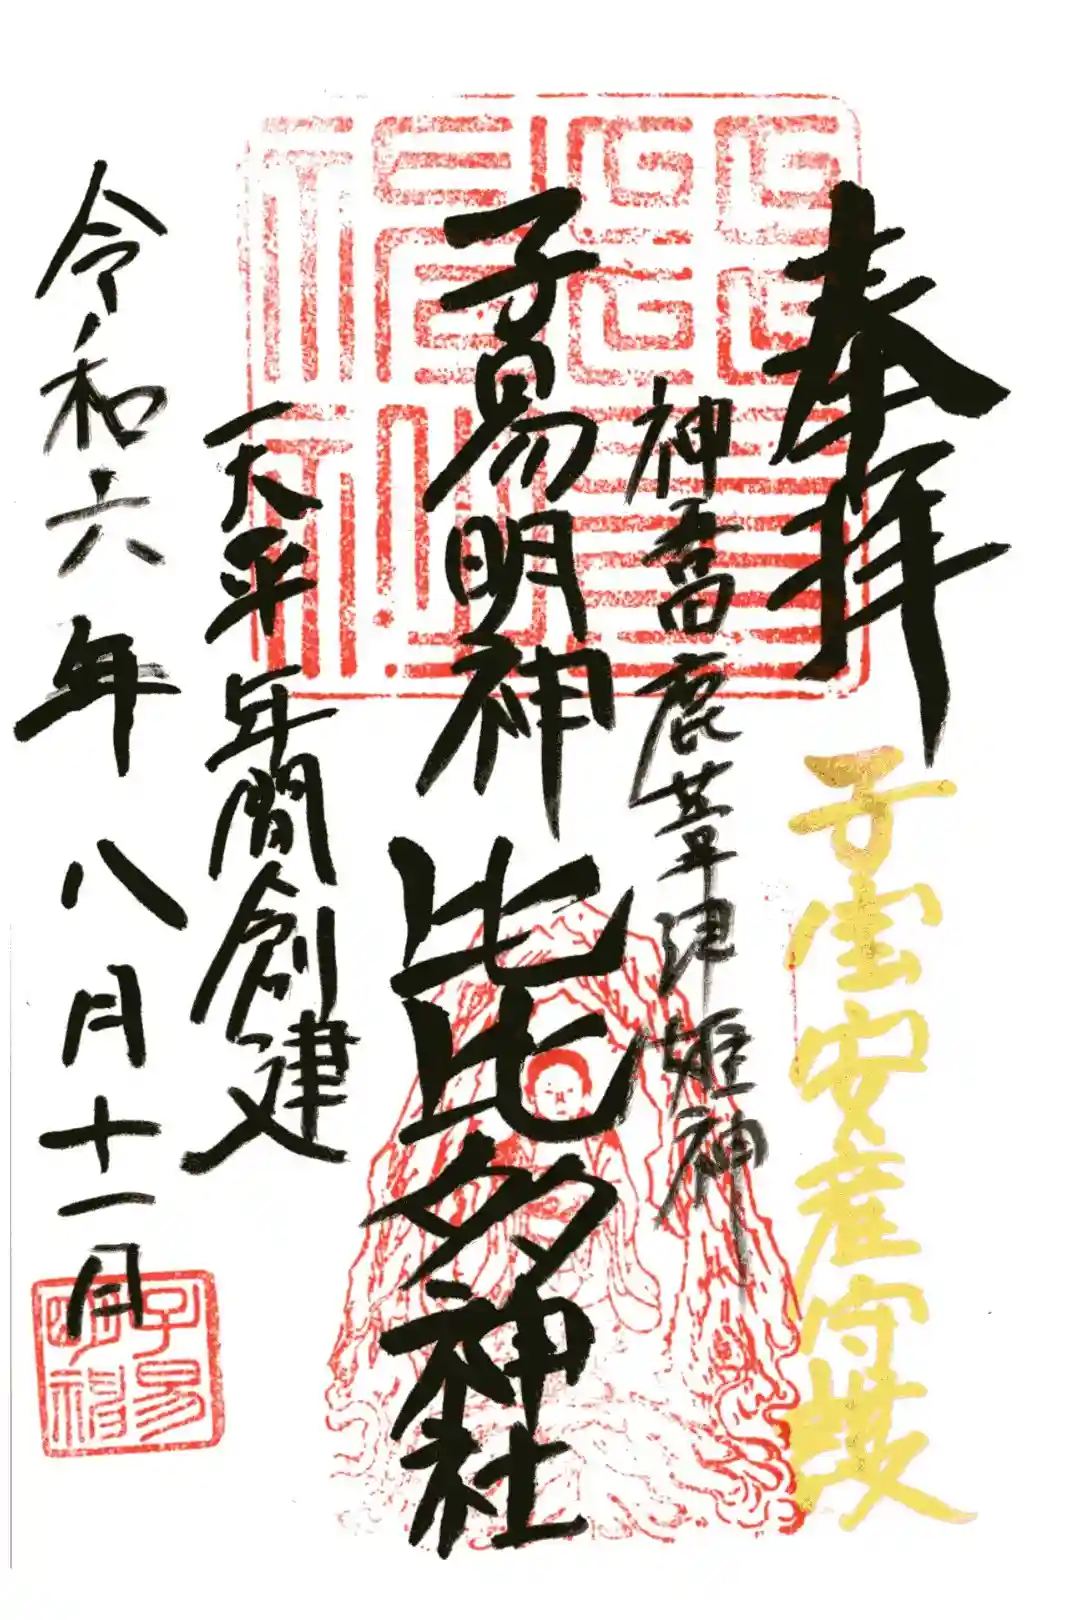 奉拝
子宝安産守護
神吾田鹿葦津姫神
子易明神 比比多神社
天平年間創建
令和六年八月十一日
子易明神